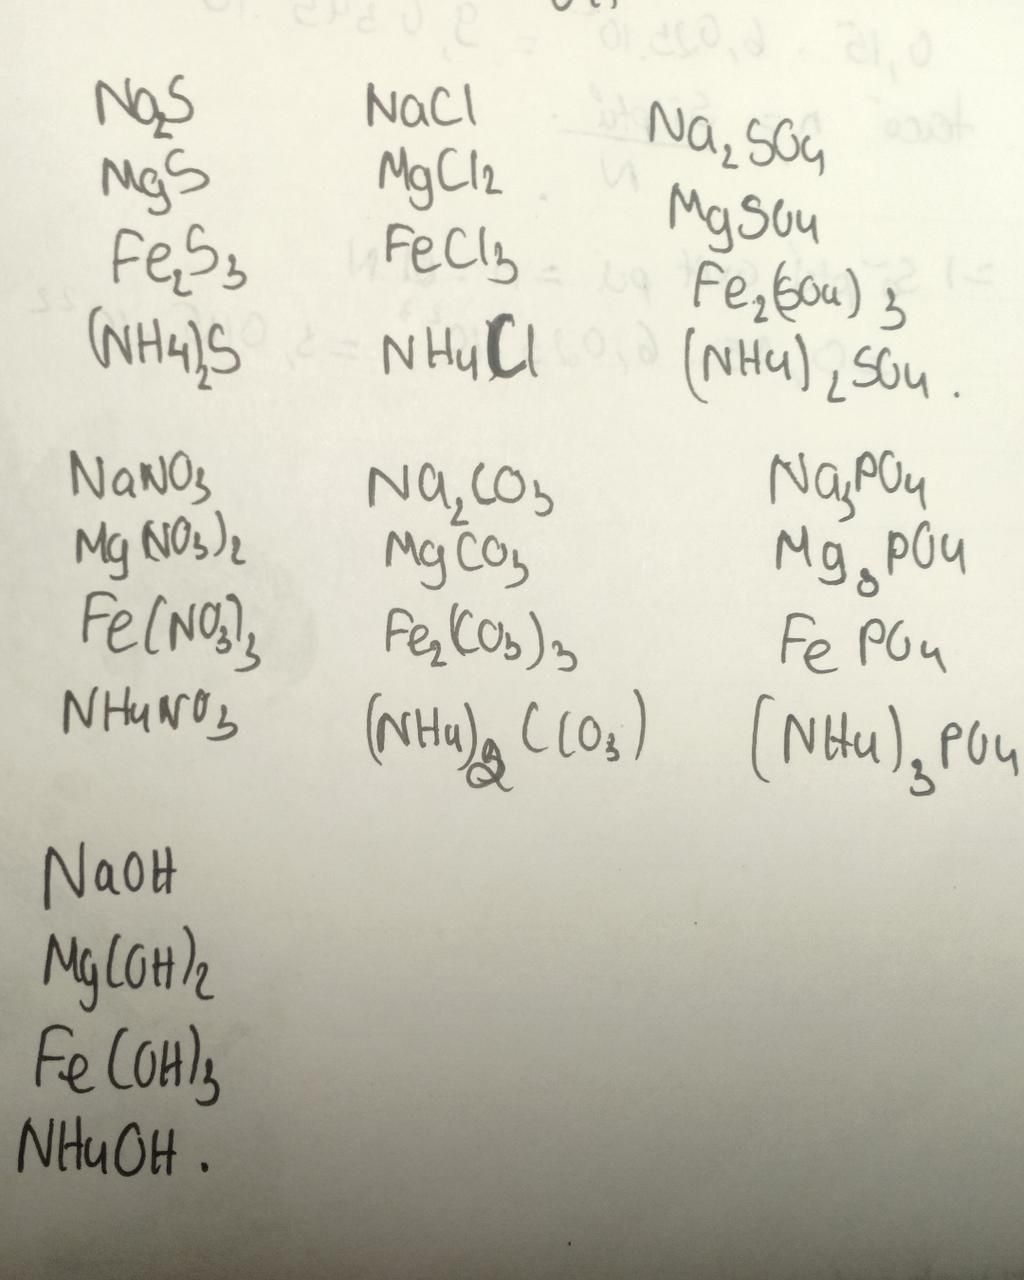 Na2S
MgS
Fe2S3
(NH4)2S
NaCl
MgCl2
FeCl3
NH4Cl
Na2SO4
MgSO4
Fe2(SO4)3
(NH4)2SO4.
NaNO3
Mg(NO3)2
Fe(NO3)3
NH4NO3
Na2CO3
MgCO3
Fe2(CO3)3
(NH4)2C(O3)
Na3PO4
Mg3PO4
FePO4
(NH4)3PO4
NaOH
Mg(OH)2
Fe(OH)3
NH4OH.